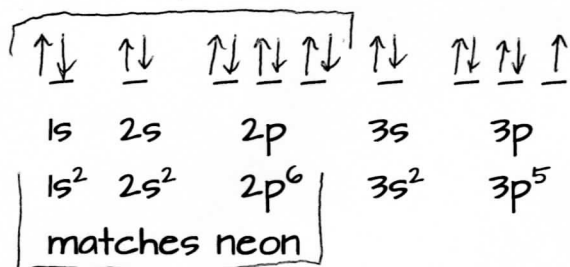 ↑↓ ↑↓ ↑↓ ↑↓ ↑↓ ↑↓ ↑↓ ↑↓ ↑
1s 2s 2p 3s 3p
1s² 2s² 2p⁶ 3s² 3p⁵
matches neon